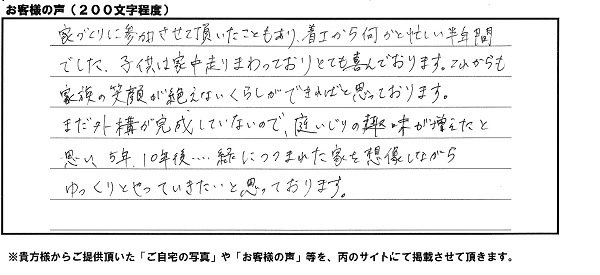 お客様の声（２００文字程度）
家づくりに参加させて頂いたこともあり、着工から何かと忙しい半年間
でした。子供は家中走りまわっておりとても喜んでおります。これからも
家族の笑顔が絶えないくらしができればと思っております。
まだ外構が完成していないので、庭いじりの趣味が増えたと
思い、5年、10年後‥‥緑につつまれた家を想像しながら
ゆっくりとやっていきたいと思っております。
※貴方様からご提供頂いた「ご自宅の写真」や「お客様の声」等を、丙のサイトにて掲載させて頂きます。